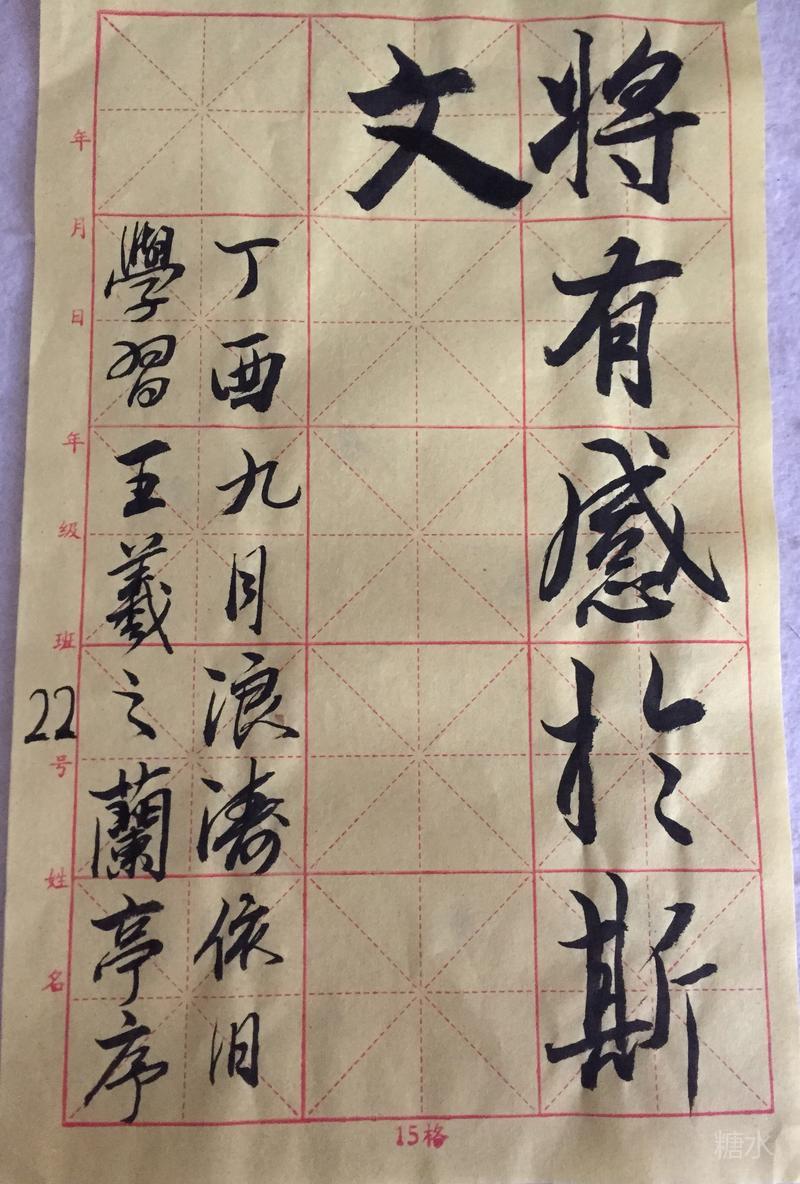 將有感於斯
文
丁酉九月浪濤依旧
學習王羲之蘭亭序
年月日年级班22号姓名
15格
糖水